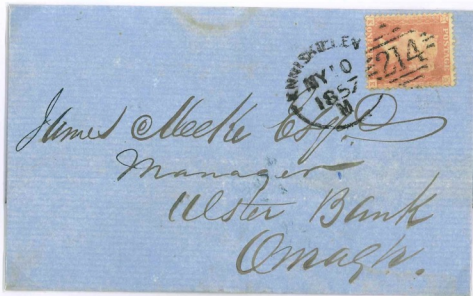 ENNISKILLEN
MY 10
1857
M
214
POSTAGE
James Meeke Esqr
Manager
Ulster Bank
Omagh.